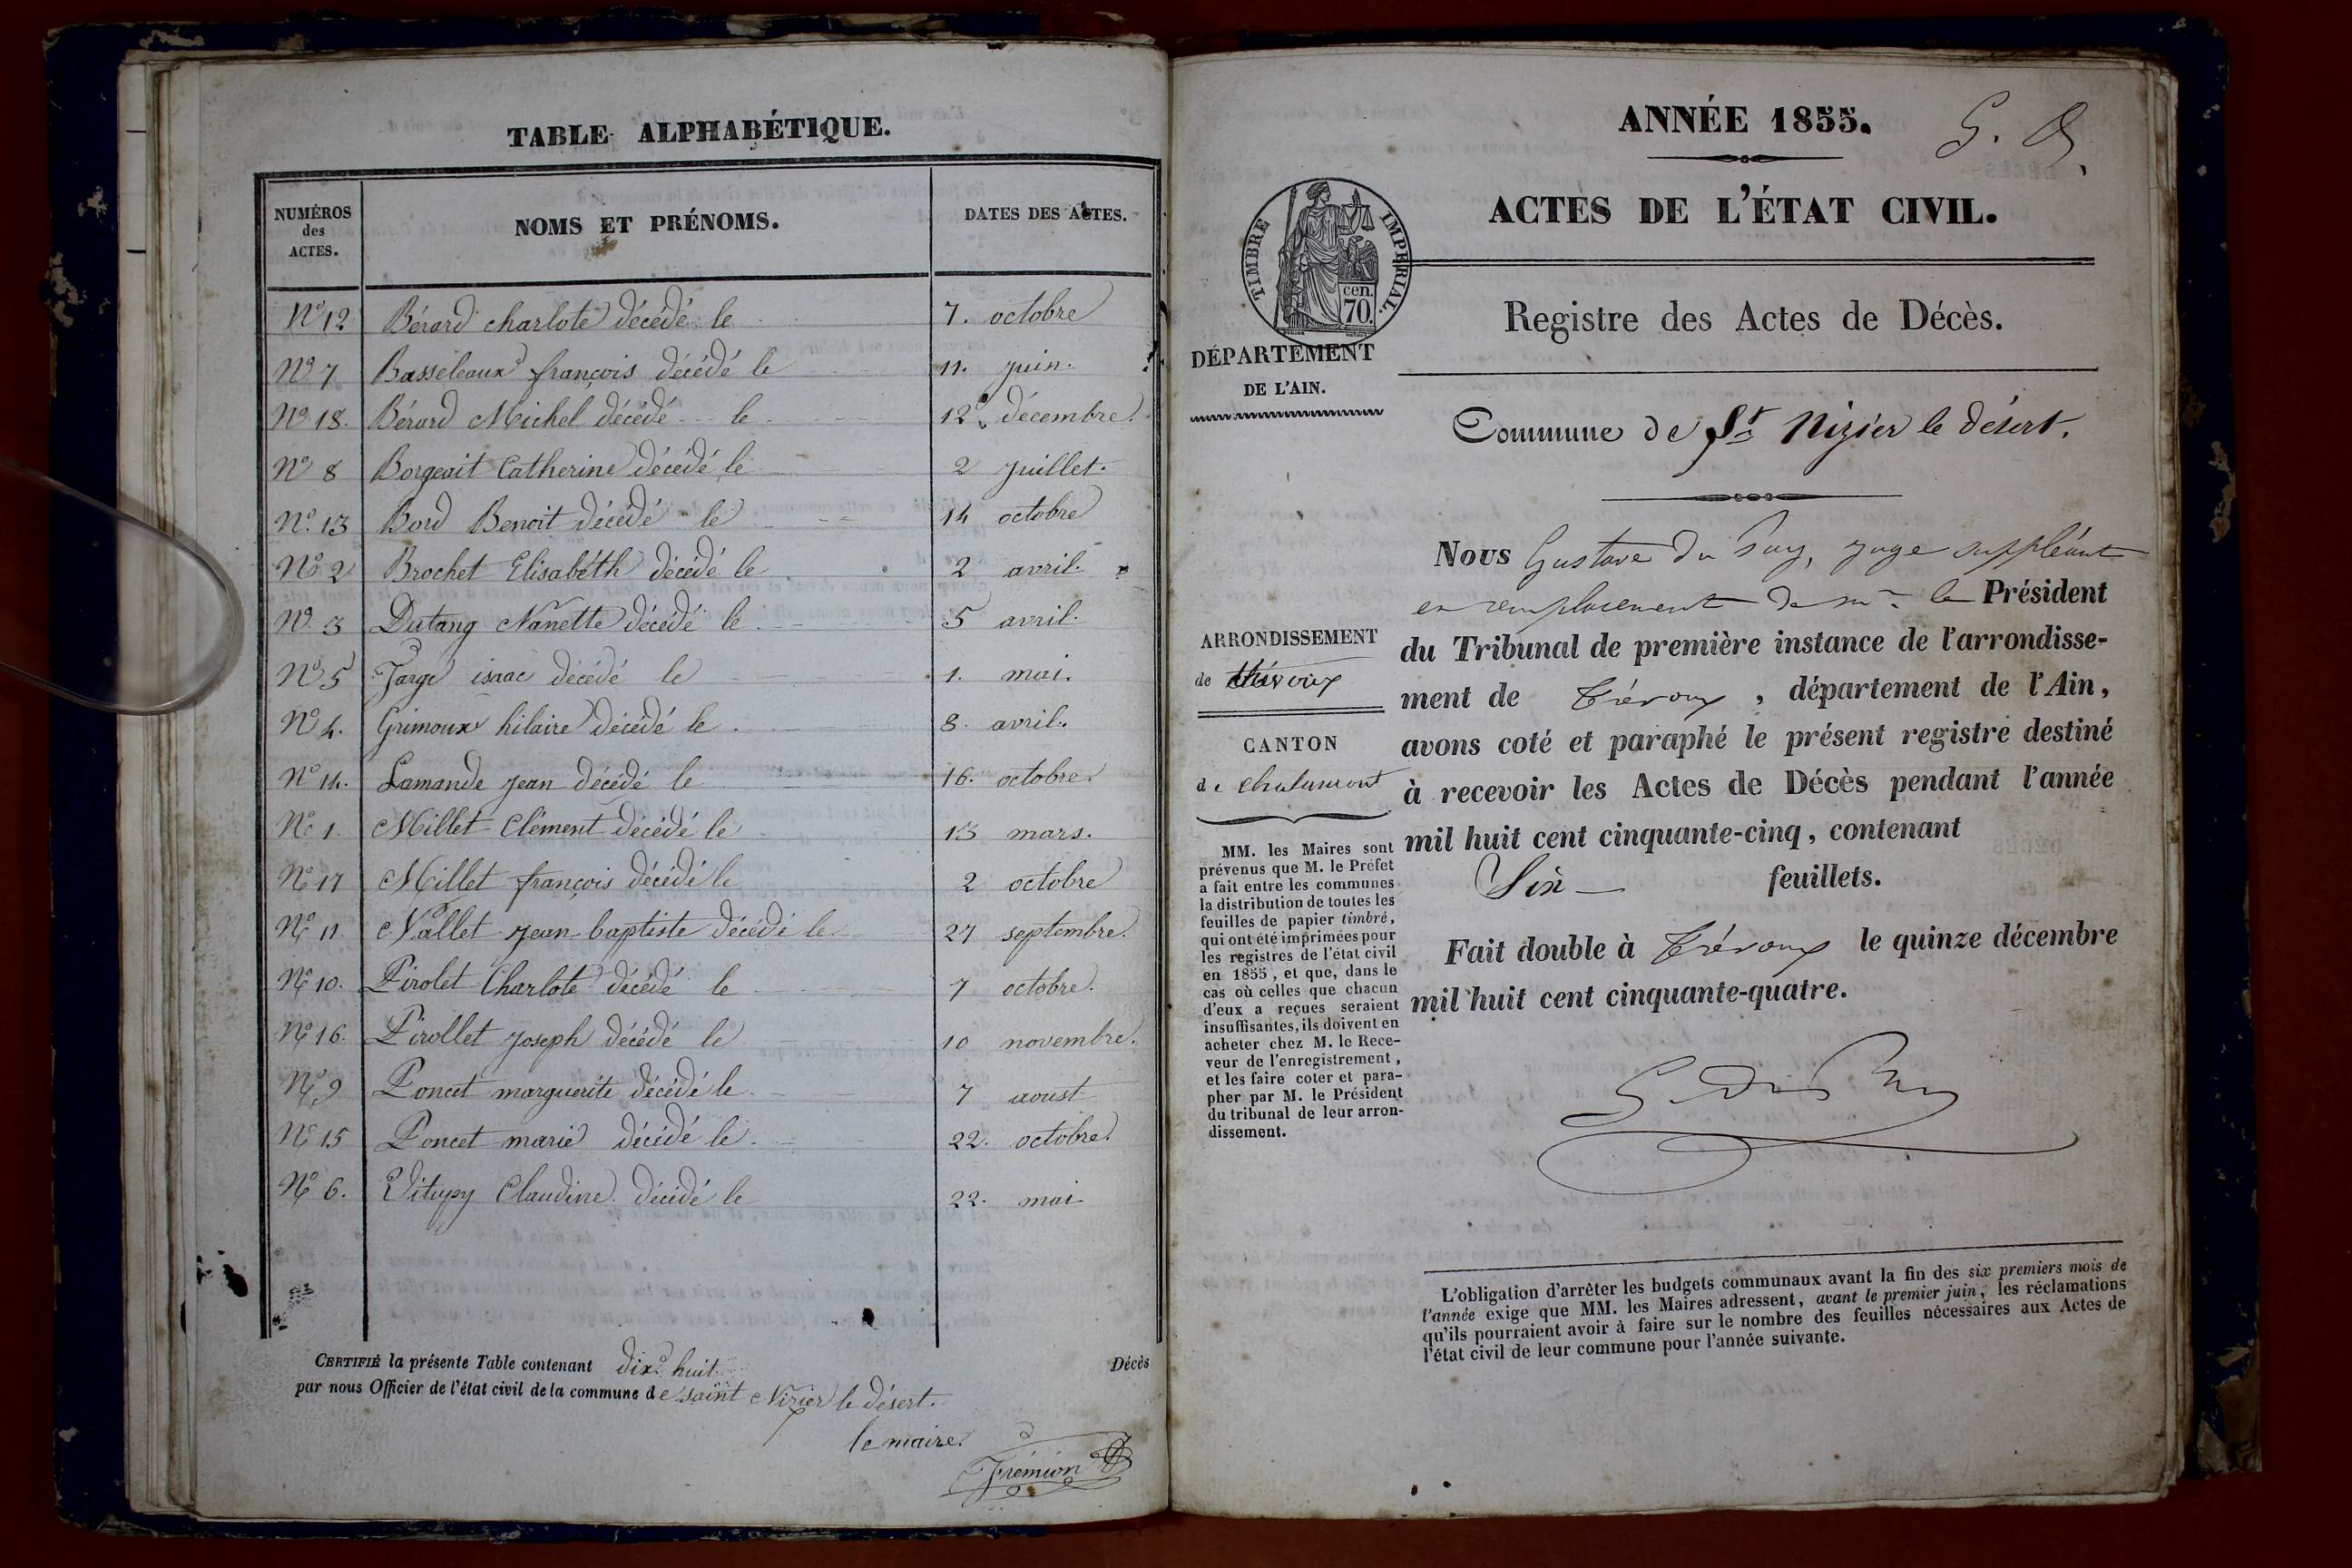 TABLE ALPHABÉTIQUE.
NUMÉROS des ACTES. NOMS ET PRÉNOMS. DATES DES ACTES.
Nº 12 Bérard charlote décédé le 7. octobre
Nº 7 Basseleaux françois décédé le 11. juin.
Nº 18. Bérard Michel décédé le 12 décembre.
Nº 8 Borgeait Catherine décédé le 2 juillet.
Nº 13 Bord Benoit décédé le 14 octobre
Nº 2 Brochet Elisabéth décédé le 2 avril.
Nº 3 Dutang Nanette décédé le 5 avril.
Nº 5 Farge isaac décédé le 1. mai.
Nº 4. Grimoux hilaire décédé le 8. avril.
Nº 14. Lamande jean décédé le 16. octobre.
Nº 1. Millet Clément décédé le 13 mars.
Nº 17 Millet françois décédé le 2 octobre
Nº 11 Nallet jean baptiste décédé le 27 septembre.
Nº 10. Pirolet Charlote décédé le 7 octobre.
Nº 16. Pirollet joseph décédé le 10 novembre.
Nº 9 Poncet marguerite décédé le 7 aoust
Nº 15 Poncet marie décédé le 22. octobre.
Nº 6. Claudine décédé le 22. mai
CERTIFIÉ la présente Table contenant dix huit Décès
par nous Officier de l'état civil de la commune de saint Nizier le désert.
le maire.
Frémion
ANNÉE 1855.
ACTES DE L'ÉTAT CIVIL.
TIMBRE IMPERIAL.
cen.
70.
Registre des Actes de Décès.
DÉPARTEMENT
DE L'AIN.
Commune de St Nizier le désert.
Nous Gustave du Puy, juge suppléant
en remplacement de mr. le Président
du Tribunal de première instance de l'arrondisse-
ment de Trévoux, département de l'Ain,
avons coté et paraphé le présent registre destiné
à recevoir les Actes de Décès pendant l'année
mil huit cent cinquante-cinq, contenant
Six feuillets.
Fait double à Trévoux le quinze décembre
mil huit cent cinquante-quatre.
G. du Puy
ARRONDISSEMENT
de thévoux
CANTON
de chalamont
MM. les Maires sont
prévenus que M. le Préfet
a fait entre les communes
la distribution de toutes les
feuilles de papier timbré,
qui ont été imprimées pour
les registres de l'état civil
en 1855, et que, dans le
cas où celles que chacun
d'eux a reçues seraient
insuffisantes, ils doivent en
acheter chez M. le Rece-
veur de l'enregistrement,
et les faire coter et para-
pher par M. le Président
du tribunal de leur arron-
dissement.
L'obligation d'arrêter les budgets communaux avant la fin des six premiers mois de
l'année exige que MM. les Maires adressent, avant le premier juin, les réclamations
qu'ils pourraient avoir à faire sur le nombre des feuilles nécessaires aux Actes de
l'état civil de leur commune pour l'année suivante.